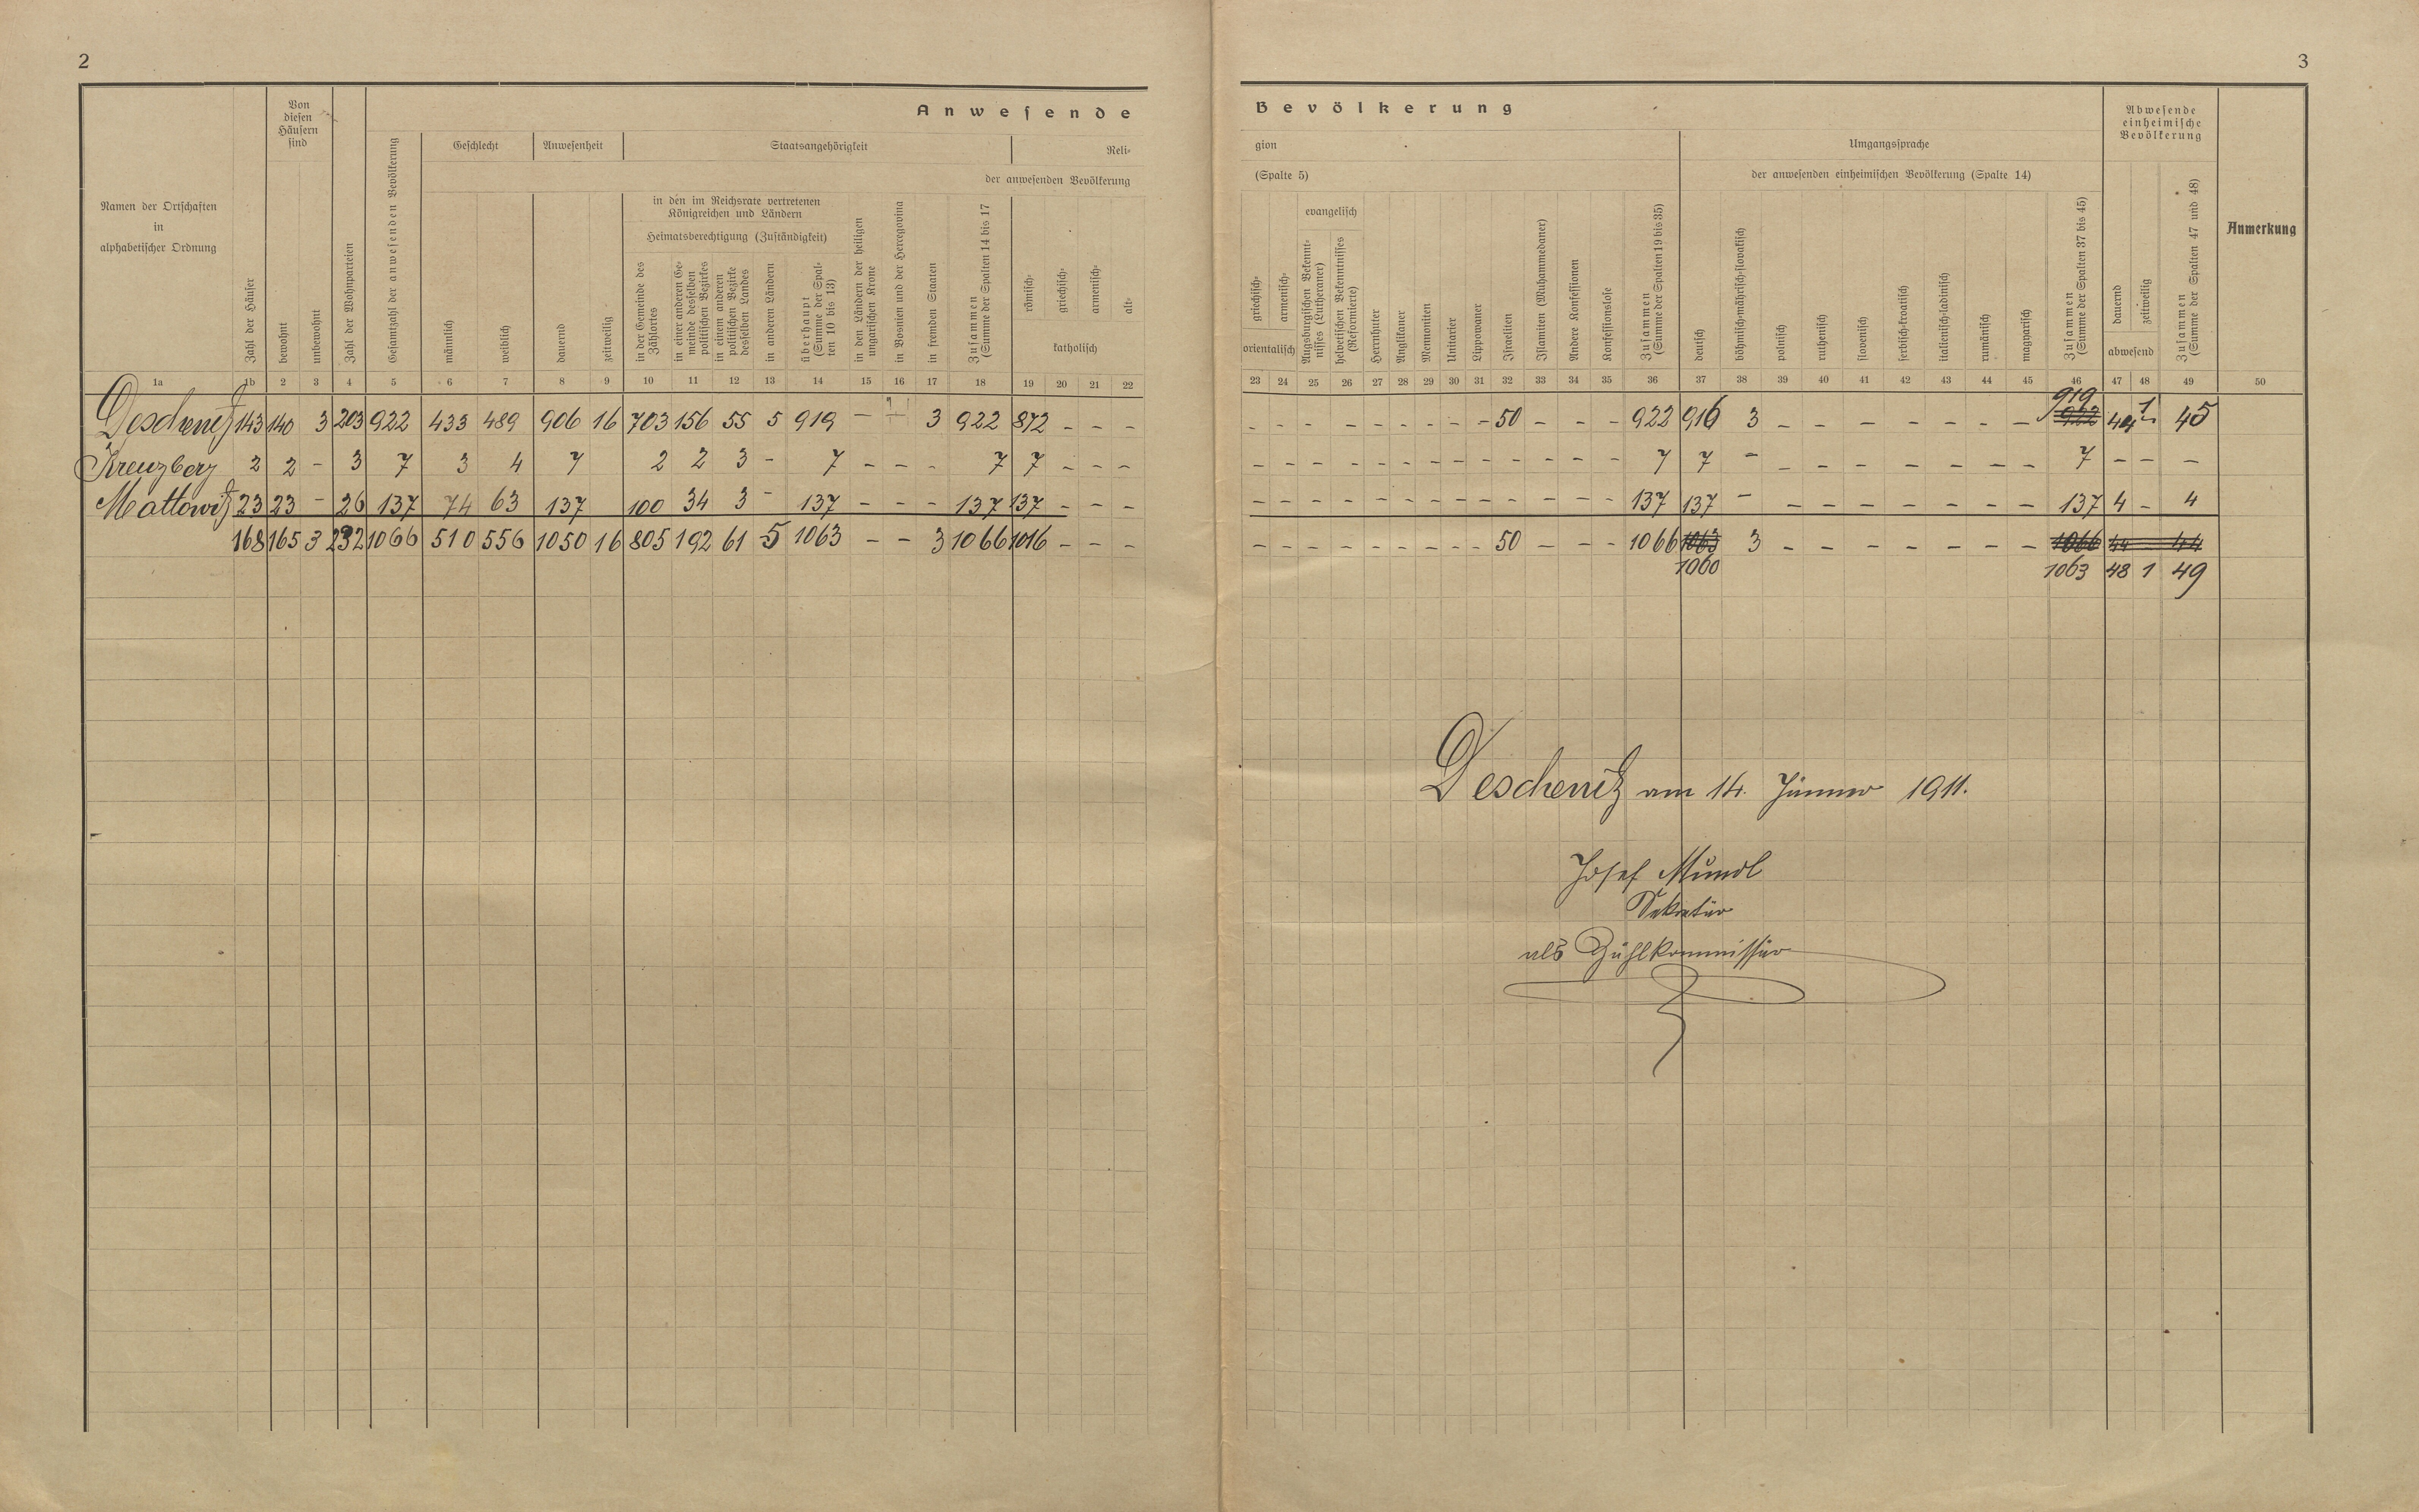 2
3
Anwesende
Bevölkerung
Namen der Ortschaften
in
alphabetischer Ordnung
Zahl der Häuser
Von
diesen
Häusern
sind
bewohnt
unbewohnt
Zahl der Wohnparteien
Gesamtzahl der anwesenden Bevölkerung
Geschlecht
Anwesenheit
Staatsangehörigkeit
Reli-
der anwesenden Bevölkerung
männlich
weiblich
dauernd
zeitweilig
in den im Reichsrate vertretenen
Königreichen und Ländern
Heimatsberechtigung (Zuständigkeit)
in der Gemeinde des
Zählortes
in einer anderen Ge-
meinde desselben
politischen Bezirkes
in einem anderen
politischen Bezirke
desselben Landes
in anderen Ländern
überhaupt
(Summe der Spal-
ten 10 bis 13)
in den Ländern der heiligen
ungarischen Krone
in Bosnien und der Hercegovina
in fremden Staaten
Zusammen
(Summe der Spalten 14 bis 17
römisch-
griechisch-
armenisch-
alt-
katholisch
gion
(Spalte 5)
griechisch-
armenisch-
orientalisch
evangelisch
Augsburgischen Bekennt-
nisses (Lutheraner)
helvetischen Bekenntnisses
(Reformierte)
Herrnhuter
Anglikaner
Mennoniten
Unitarier
Lippowaner
Israeliten
Islamiten (Muhammedaner)
Andere Konfessionen
Konfessionslose
Zusammen
(Summe der Spalten 19 bis 35)
Umgangssprache
der anwesenden einheimischen Bevölkerung (Spalte 14)
deutsch
böhmisch-mährisch-slovakisch
polnisch
ruthenisch
slovenisch
serbisch-kroatisch
italienisch-ladinisch
rumänisch
magyarisch
Zusammen
(Summe der Spalten 37 bis 45)
Abwesende
einheimische
Bevölkerung
dauernd
zeitweilig
abwesend
Zusammen
(Summe der Spalten 47 und 48)
Anmerkung
1a 1b 2 3 4 5 6 7 8 9 10 11 12 13 14 15 16 17 18 19 20 21 22
23 24 25 26 27 28 29 30 31 32 33 34 35 36 37 38 39 40 41 42 43 44 45 46 47 48 49 50
Deschenitz 143 140 3 203 922 433 489 906 16 703 156 55 5 919 - - 3 922 872 - - -
- - - - - - - - - 50 - - - 922 916 3 - - - - - - - 922 919 44 1 45
Kreuzberg 2 2 - 3 7 3 4 7 2 2 3 - 7 - - - 7 7 - - -
- - - - - - - - - - - - - 7 7 - - - - - - - - 7 - - -
Mattowitz 23 23 - 26 137 74 63 137 100 34 3 - 137 - - - 137 137 - - -
- - - - - - - - - - - - - 137 137 - - - - - - - - 137 4 - 4
168 165 3 232 1066 510 556 1050 16 805 192 61 5 1063 - - 3 1066 1016 - - -
- - - - - - - - - 50 - - - 1066 1063 3 - - - - - - - 1066 44 - 44
1060 1063 48 1 49
Deschenitz am 14. Jänner 1911.
Josef Mundl
Sekretär
als Zählkommissär